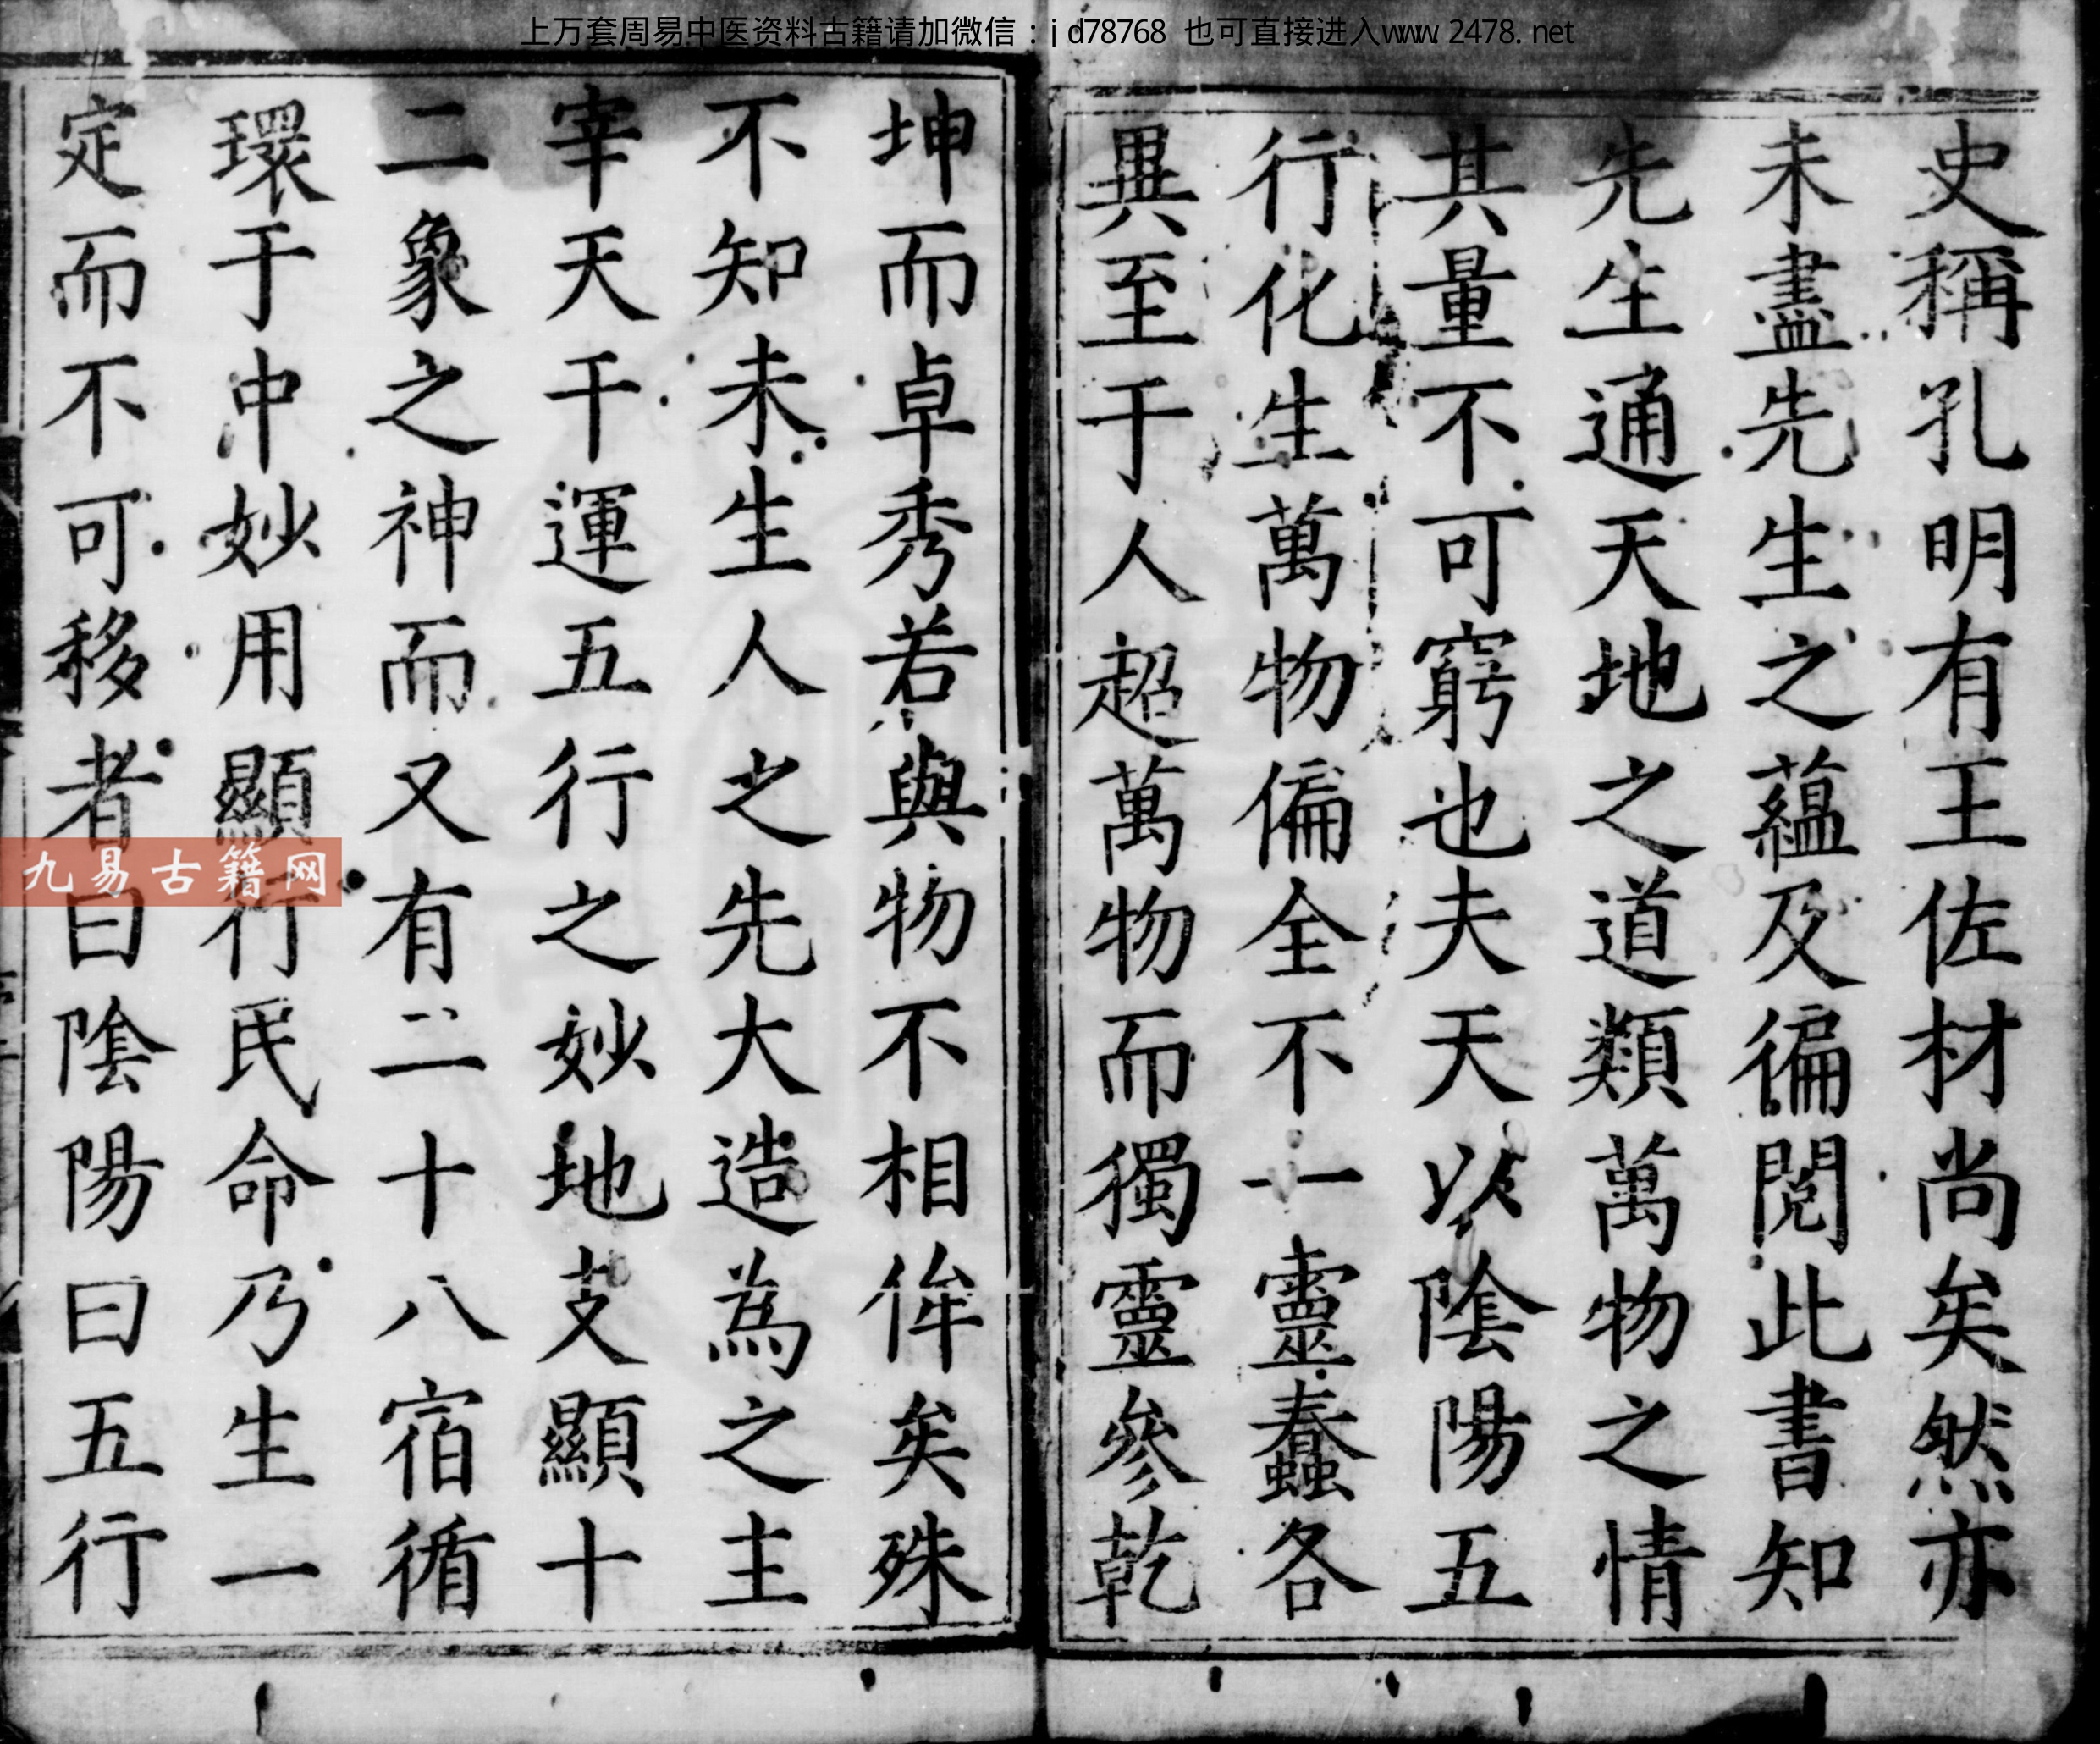 上万套周易中医资料古籍请加微信：jd78768 也可直接进入www.2478.net
史稱孔明有王佐材尚矣然亦
未盡先生之蘊及徧閱此書知
先生通天地之道類萬物之情
其量不可窮也夫天以陰陽五
行化生萬物偏全不一靈蠢各
異至于人超萬物而獨靈參乾
坤而卓秀若與物不相侔矣殊
不知未生人之先大造為之主
宰天干運五行之妙地支顯十
二象之神而又有二十八宿循
環于中妙用顯行民命乃生一
定而不可移者曰陰陽曰五行
九易古籍网